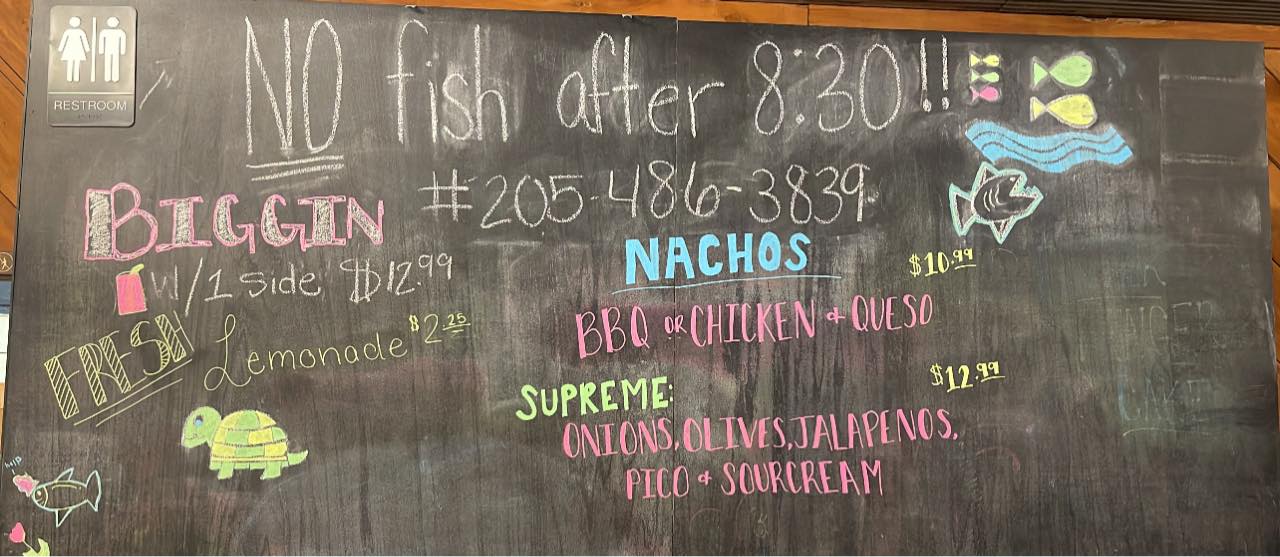 RESTROOM
NO fish after 8:30!!
#205-486-3839
BIGGIN
W/1 side $12.99
FRESH Lemonade $2.25
NACHOS
$10.99
BBQ OR CHICKEN & QUESO
SUPREME:
$12.99
ONIONS, OLIVES, JALAPENOS,
PICO & SOURCREAM
help